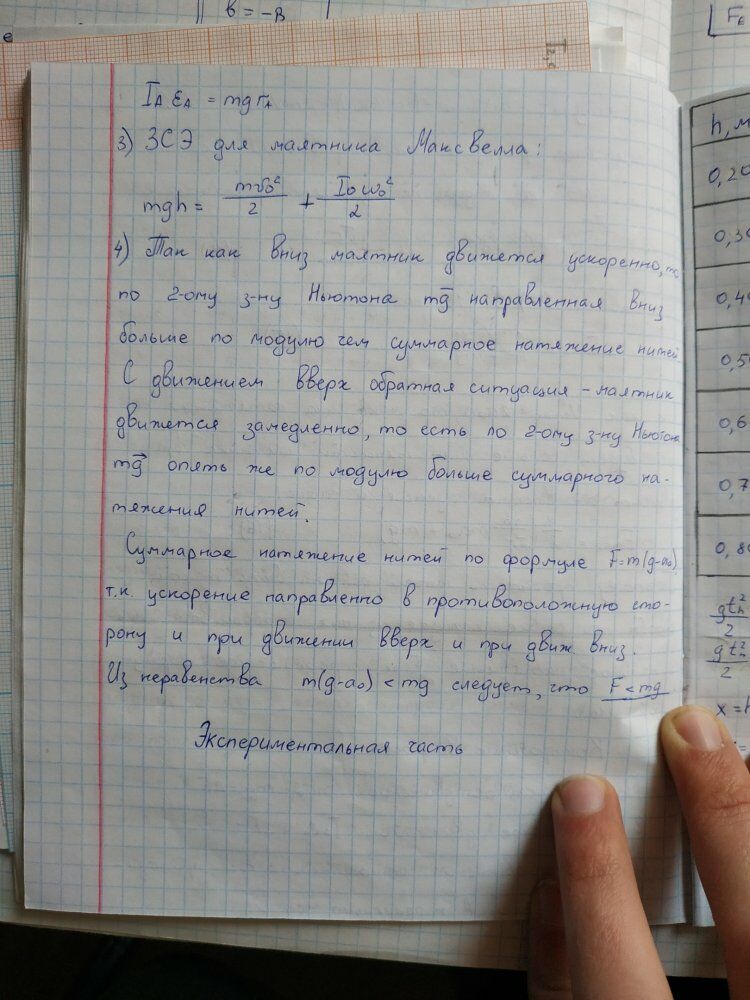 b = -B
I_A ε_A = mg r_A
3) ЗСЭ для маятника Максвелла:
mgh = mv₀²/2 + I₀ω₀²/2
4) Так как вниз маятник движется ускоренно, то
по 2-ому з-ну Ньютона mg⃗ направленная вниз
больше по модулю чем суммарное натяжение нитей
С движением вверх обратная ситуация - маятник
движется замедленно, то есть по 2-ому з-ну Ньютона
mg⃗ опять же по модулю больше суммарного на-
тяжения нитей.
Суммарное натяжение нитей по формуле F=m(g-a₀)
т.к. ускорение направленно в противоположную сто-
рону и при движении вверх и при движ вниз.
Из неравенства m(g-a₀) < mg следует, что F < mg
Экспериментальная часть
h, м
0,20
0,30
0,40
0,50
0,6
0,7
0,80
gtₙ²/2
gtₙ²/2